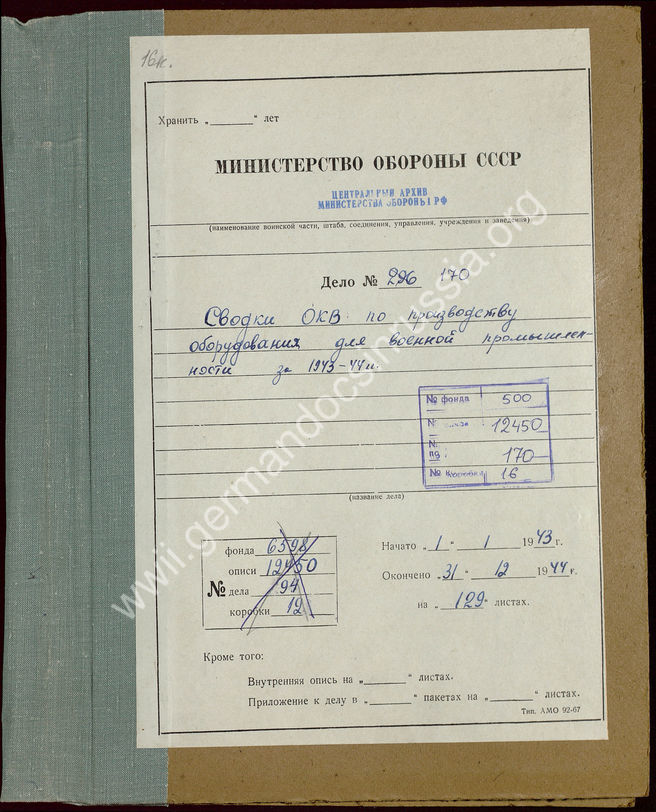 16к.
Хранить „ “ лет
МИНИСТЕРСТВО ОБОРОНЫ СССР
ЦЕНТРАЛЬНЫЙ АРХИВ
МИНИСТЕРСТВА ОБОРОНЫ РФ
(наименование воинской части, штаба, соединения, управления, учреждения и заведения)
Дело № 226 170
Сводки ОКВ по производству
оборудования для военной промышлен-
ности за 1943-44 г.
№ фонда 500
№ 12450
№ 170
№ коробки 16
(название дела)
фонда 6598
описи 12450
№ дела 94
коробки 12
Начато „1“ 1 1943 г.
Окончено „31“ 12 1944 г.
на „129“ листах.
Кроме того:
Внутренняя опись на „ “ листах.
Приложение к делу в „ “ пакетах на „ “ листах.
Тип. АМО 92-67
wwii.germandocsinrussia.org